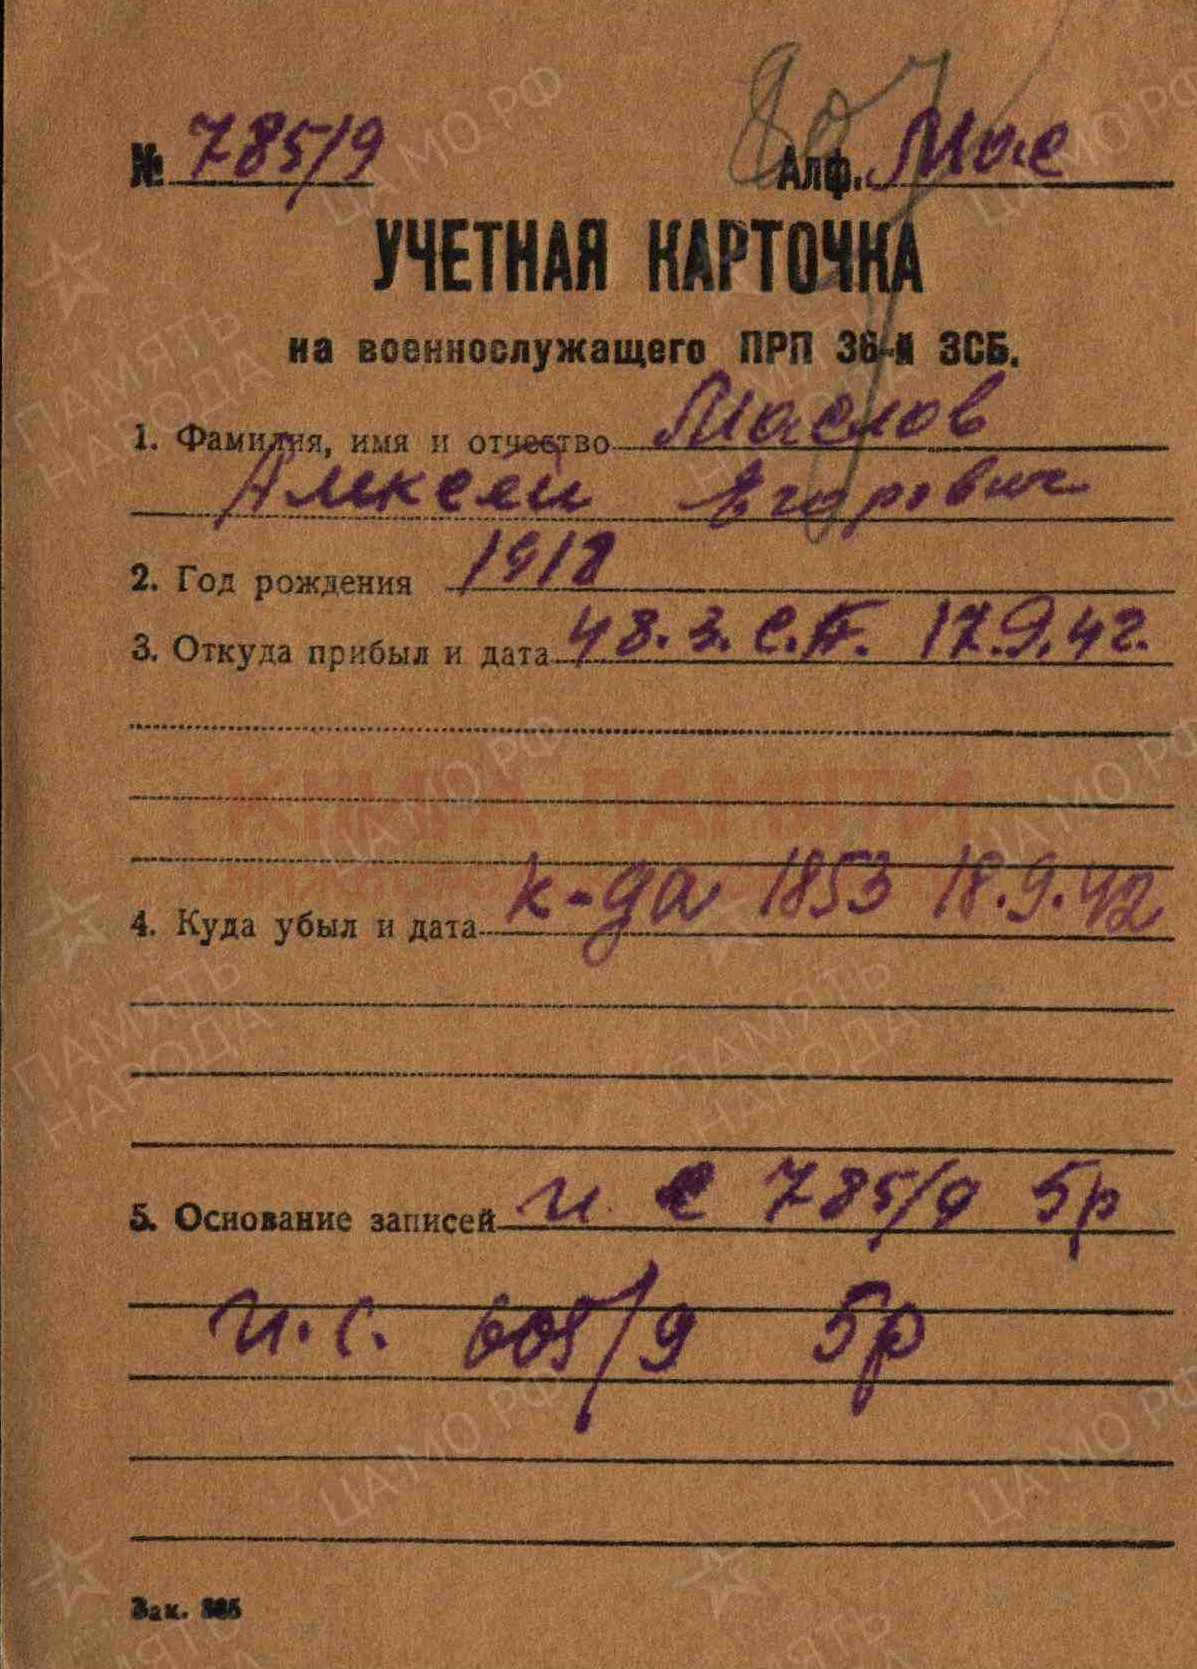 807
№ 785/9 Алф. Мас
УЧЕТНАЯ КАРТОЧКА
на военнослужащего ПРП 36-й ЗСБ.
1. Фамилия, имя и отчество Маслов
Алексей Егорович
2. Год рождения 1918
3. Откуда прибыл и дата 48.З.С.П. 17.9.42.
КНИГА ПАМЯТИ
4. Куда убыл и дата к-да 1853 18.9.42
5. Основание записей и с 785/9 5р
и.с. 605/9 5р
Зак.
ЦА МО РФ
ПАМЯТЬ
НАРОДА